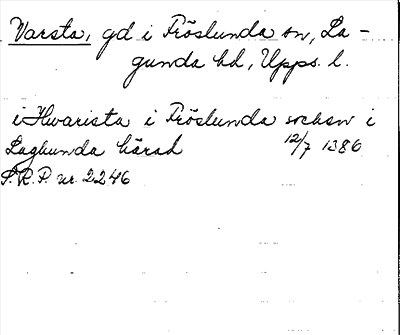 Varsta, gd i Fröslunda sn, La-
gunda hd, Upps. l.
i Hwarista i Fröslunda sokn i
Laghunda härad 12/7 1386
S.R.P. nr. 2246